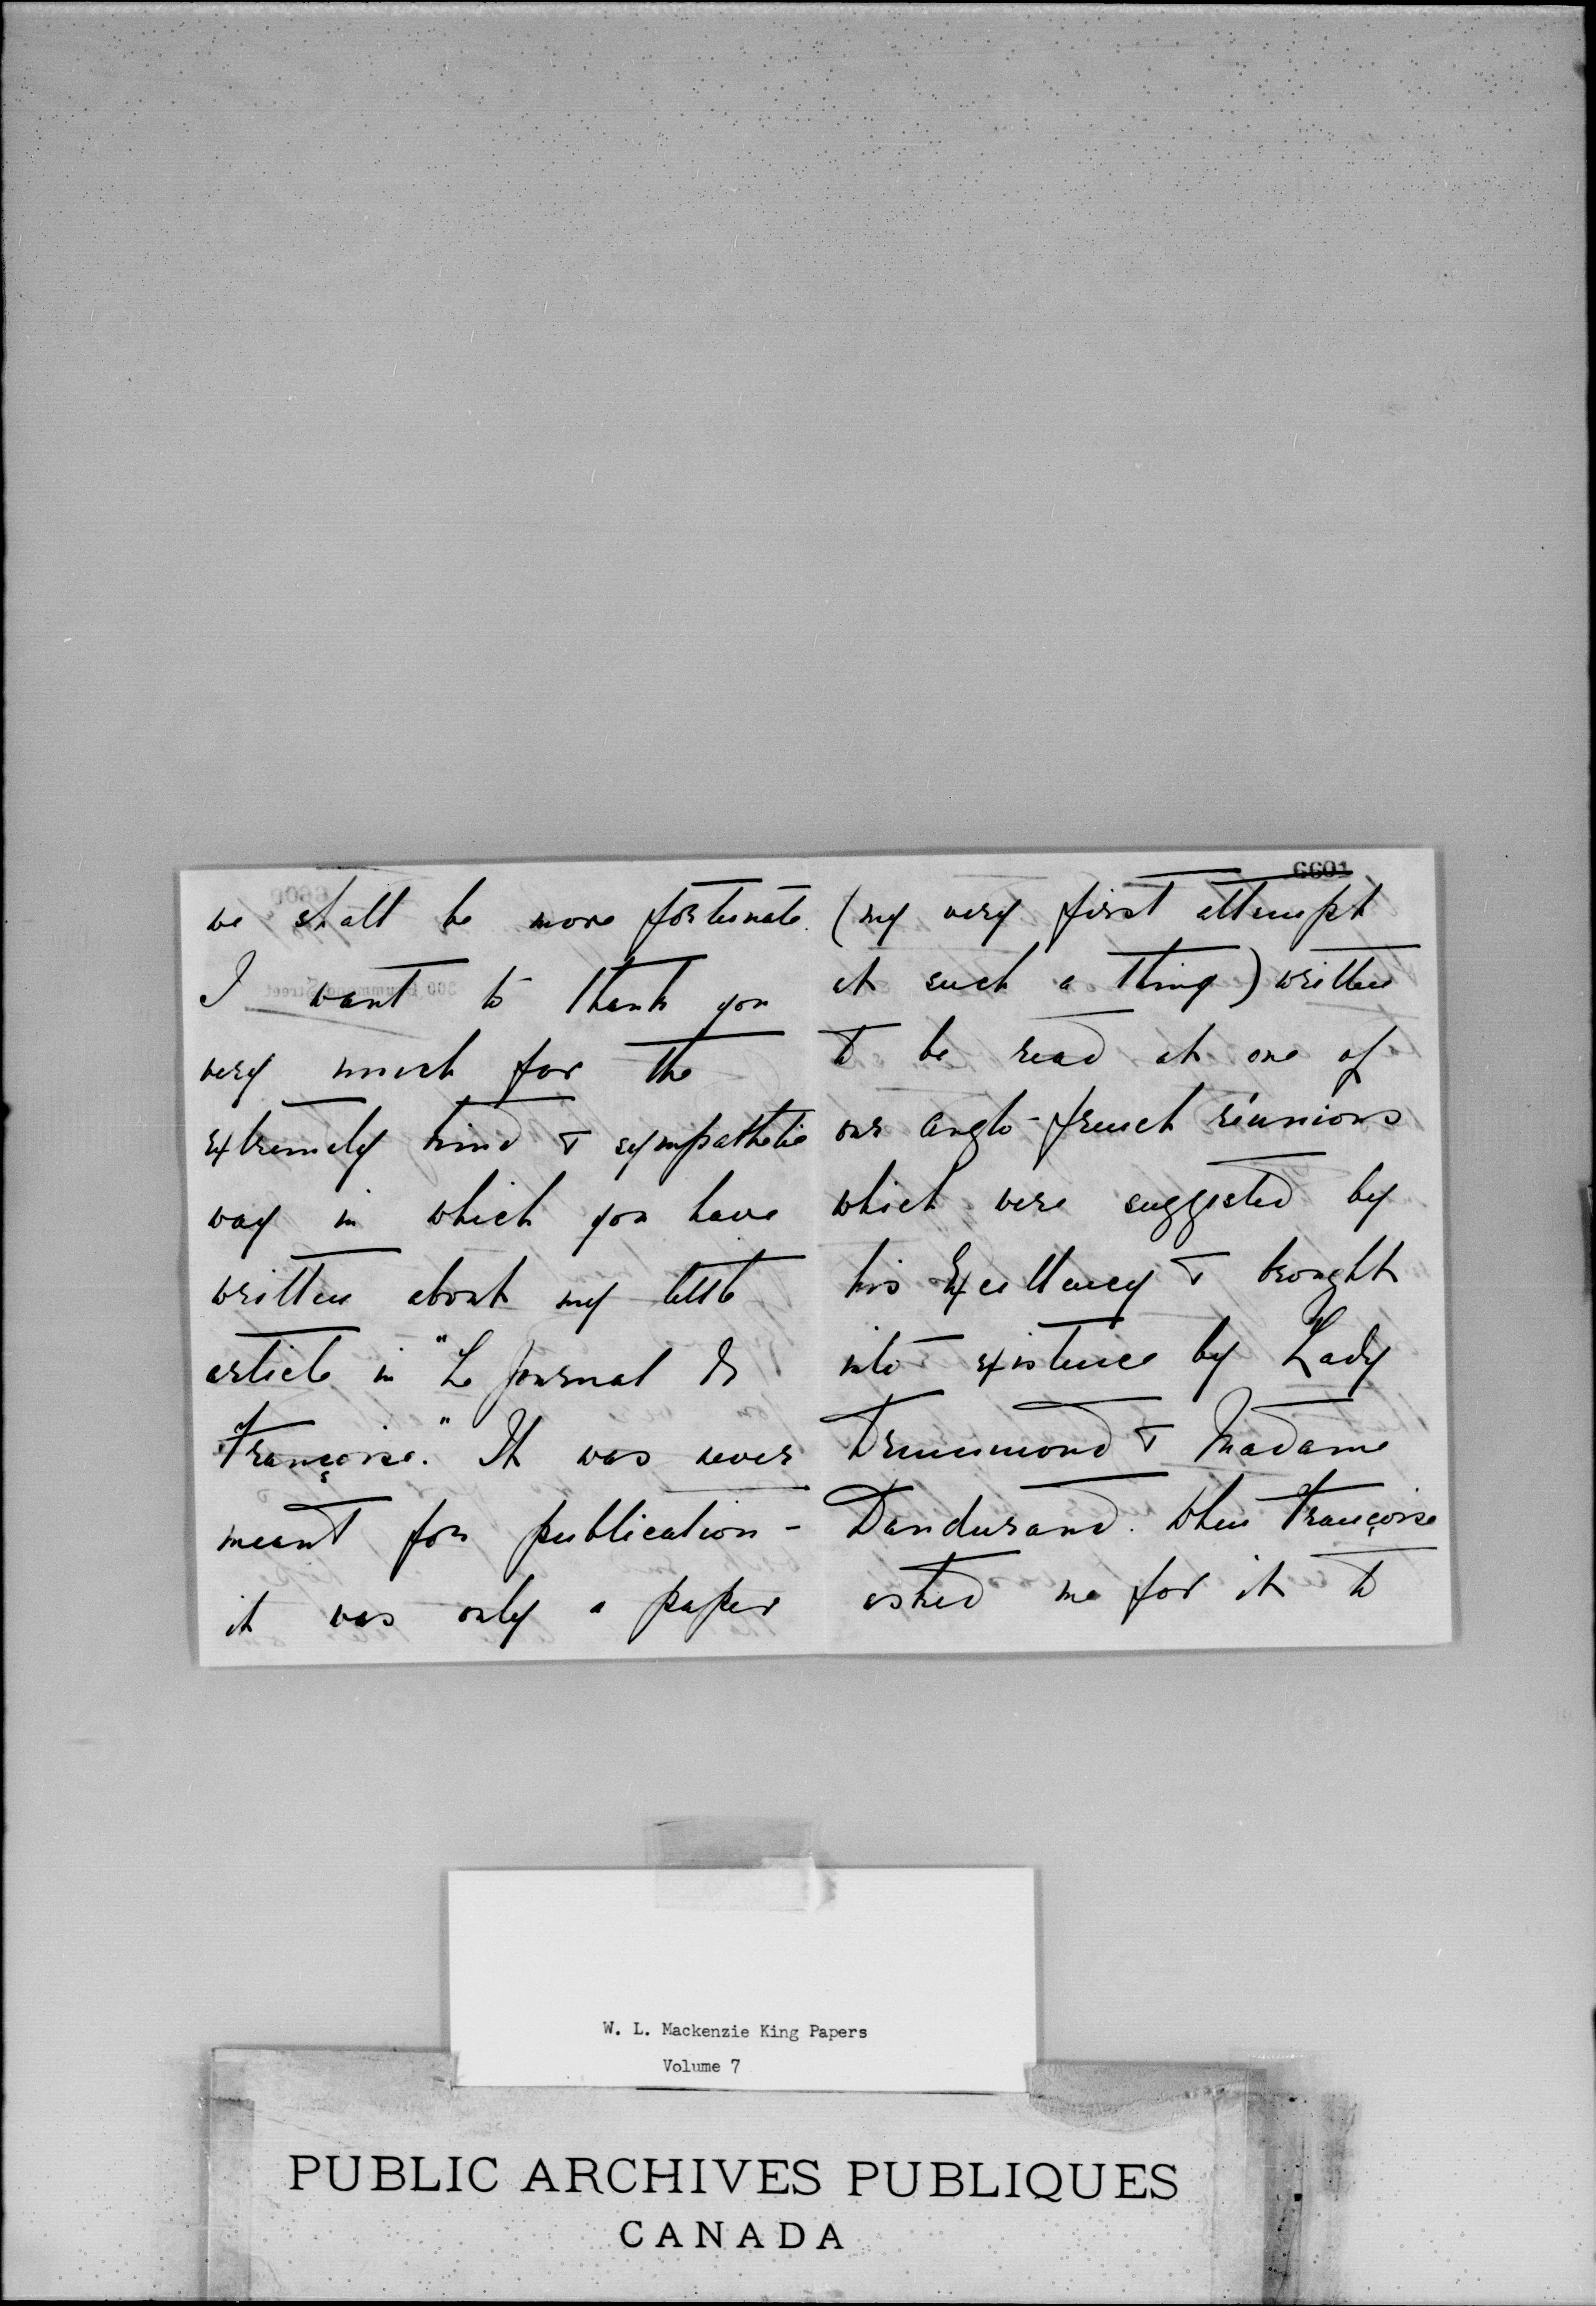 we shall be more fortunate.
I want to thank you
very much for the
extremely kind & sympathetic
way in which you have
written about my little
article in "Le Journal de
Françoise." It was never
meant for publication -
it was only a paper
6601
(my very first attempt
at such a thing) written
to be read at one of
our Anglo-French réunions
which were suggested by
his Excellency & brought
into existence by Lady
Drummond & Madame
Dandurand. When Françoise
asked me for it to
W. L. Mackenzie King Papers
Volume 7
PUBLIC ARCHIVES PUBLIQUES
CANADA